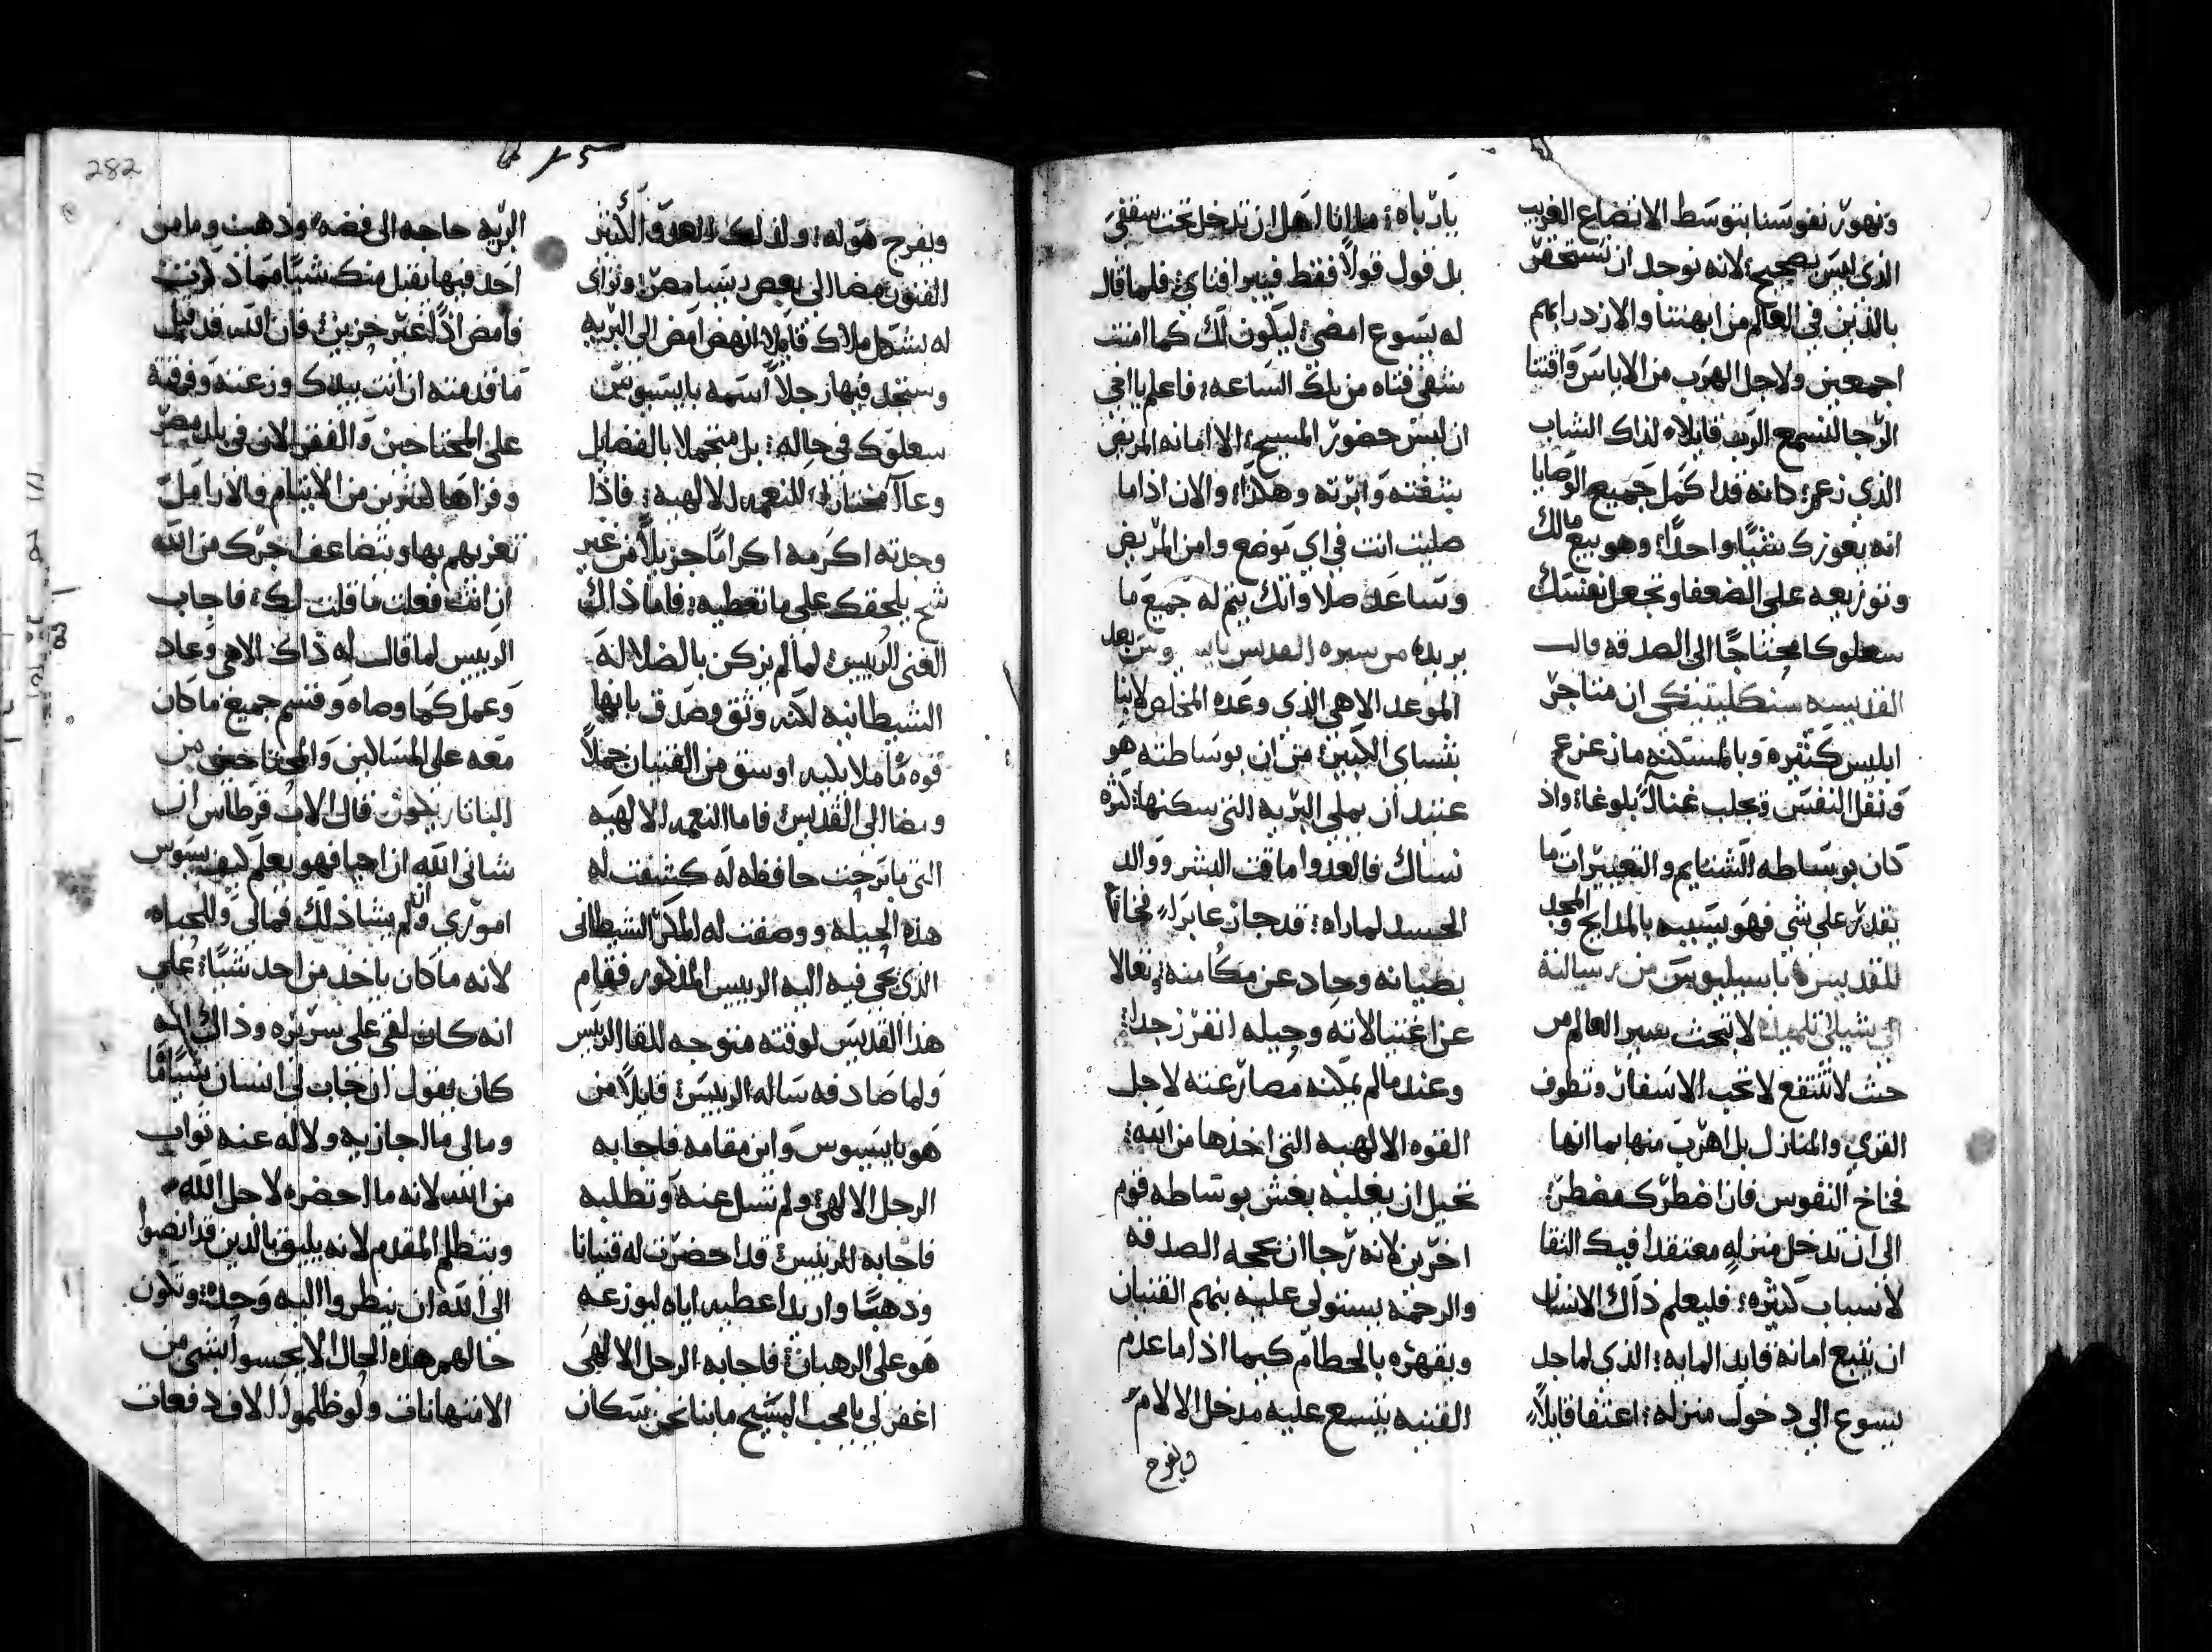 ونهور نفوسنا بتوسط الاتضاع الغريب
الذي ليس بصحيح لانه يوجد ان نستحقر
بالذين في العالم من ابهتنا والازدرا بهم
اجمعين ولاجل الهرب من الاياس وافتنا
الرجا لنسمع الرب قايلا لذاك الشاب
الذي زعم بانه قد اكمل جميع الوصايا
انه يعوزك شيا واحدا وهو بيع مالك
وتوزيعه على الضعفا وتجعل نفسك
سعلوكا محتاجا الى الصدقه قالت
القديسه سنكليتيكي ان متاجر
ابليس كثيره وبالمسكنه ما زعزع
ونقل النفس يجلب غنا بلوغا واذ
كان بوساطه الشتايم والتعييرات ما
يقدر على شي فهو يسبيه بالمدايح والمجد
للقديس باسيليوس من رسالته
الى شيلى تلميذه لا تبحث سير العالم من
حيث لا تنتفع لا تحب الاسفار وتطوف
القري والمنازل بل اهرب منها بما انها
فخاخ النفوس فان اضطرك مضطر
الى ان تدخل منزله معتقدا فيك التقا
لاسباب كثيره فليعلم ذاك الانسان
ان يتبع امانة قايد المايه الذي لما جد
يسوع الى دخول منزله اعتفا قايلا
يارباه ما انا اهل ان تدخل تحت سقفي
بل قول قولا فقط فيبرا فتاي فلما قال
له يسوع امضي ليكون لك كما امنت
شفي فتاه من تلك الساعه فاعلم يا اخي
ان ليس حضور المسيح الا امانه المريض
شفته وابرته وهكذا والان اذا ما
صليت انت في اي توضع وامن المريض
وتساعد صلاواتك يتم له جميع ما
يريده من سيره القديس وبعد
الموعد الاهي الذي وعده المخلص لانبا
بتساي الكبير من ان بوساطته هو
عتيد ان يملي البريه التي سكنها كثره
نساك فالعدو ماقت البشر ووالد
الحسد لما راه قد جاز عابرا فخاخا
بطيانه وحاد عن مكامنه وتعالا
عن اغتيالاته وحيله انفرز جدا
وعندما لم يمكنه مصارعته لاجل
القوه الالهيه التي اخذها من الله
تخيل ان يغلبه بغش بوساطه قوم
اخرين لانه رجا ان بحجه الصدقه
والرحمه يستولي عليه بنهم القنيان
ويقهره بالحطام كيما اذا ما عدم
القنيه يتسع عليه مدخل الالام
ويفرح
ويفرح هو له ولذلك العدو الكثير
الفنون مضا الى بعض رييسا مصر وتراي
له بشكل ملاك قايلا انهض امض الى البريه
وستجد فيها رجلا اسمه بايسيوس
سعلوك في حاله بل متجملا بالفضايل
وعا مختارا للنعمه الالهيه فاذا
وجدته اكرمه اكراما جزيلا من غير
شح يلحقك على ما تعطيه فاما ذاك
الغني الرييس لما لم يزكن بالضلاله
الشيطانيه لكنه وثق وصدق بانها
قوه ما ملايكيه اوسق من القنيان جملا
ومضا الى القديس فاما النعمه الالهيه
التي ما برحت حافظه له كشفت له
هذه الحيله ووصفت له المكر الشيطاني
الذي يجي فيه اليه الرييس المذكور فقام
هذا القديس لوقته متوجه للقا الرييس
ولما صادفه ساله الرييس قايلا من
هو بايسيوس واين مقامه فاجابه
الرجل الالهي ولم تسل عنه وتطلبه
فاجابه الرييس قد احضرت له قنيانا
ودهبا واريد اعطيه اياه ليوزعه
هو على الرهبان فاجابه الرجل الالهي
اغفر لي يا محب المسيح ما بنا نحن سكان
البريه حاجه الى فضه وذهب وما من
احد فيها يقبل منك شيا مما ذكرت
فامض اذا غير حزين فان الله قد قبل
ما قدمته ان انت بيدك وزعته وفرقته
على المحتاحين والفقرا لان في بلد مصر
وقراها كثيرين من الايتام والارامل
تعزيهم بها ويتضاعف اجرك من الله
ان انت فعلت ما قلت لك فاجاب
الرييس لما قال له ذاك الاهي وعاد
وعمل كما وصاه وقسم جميع ما كان
معه على المساكين والمحتاجين من
قال الاب قرطاس ان
شاني الله ان احيا فهو يعلم كيف يسوس
اموري وان لم يشا ذلك فمالي وللحياه
لانه ما كان ياخذ من احد شيا على
انه كان لقي على سريره وذاك انه
كان يقول ان جاب لي انسان شيا
ومالي ما اجازيه ولا له عنه ثواب
من الله لانه ما احضره لاجل الله
ويتظلم المقدم لانه يليق بالذين قد انصبوا
الى الله ان ينظروا اليه وحده وتكون
حالهم هذه الحال الا يحسوا بشي من
الامتهانات ولو ظلموا الالاف دفعات
282